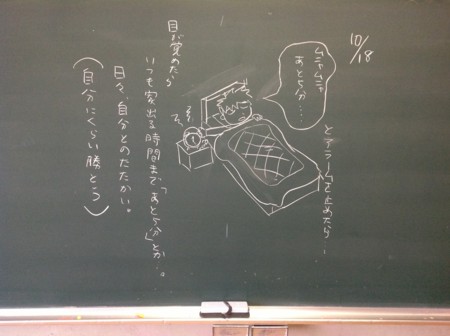 10/18
ムニャムニャ
あと5分……
とアラームを止めたら…
目が覚めたら
いつも家出る時間まで「あと5分」とか…。
日々、自分とのたたかい。
(自分にくらい勝とう)